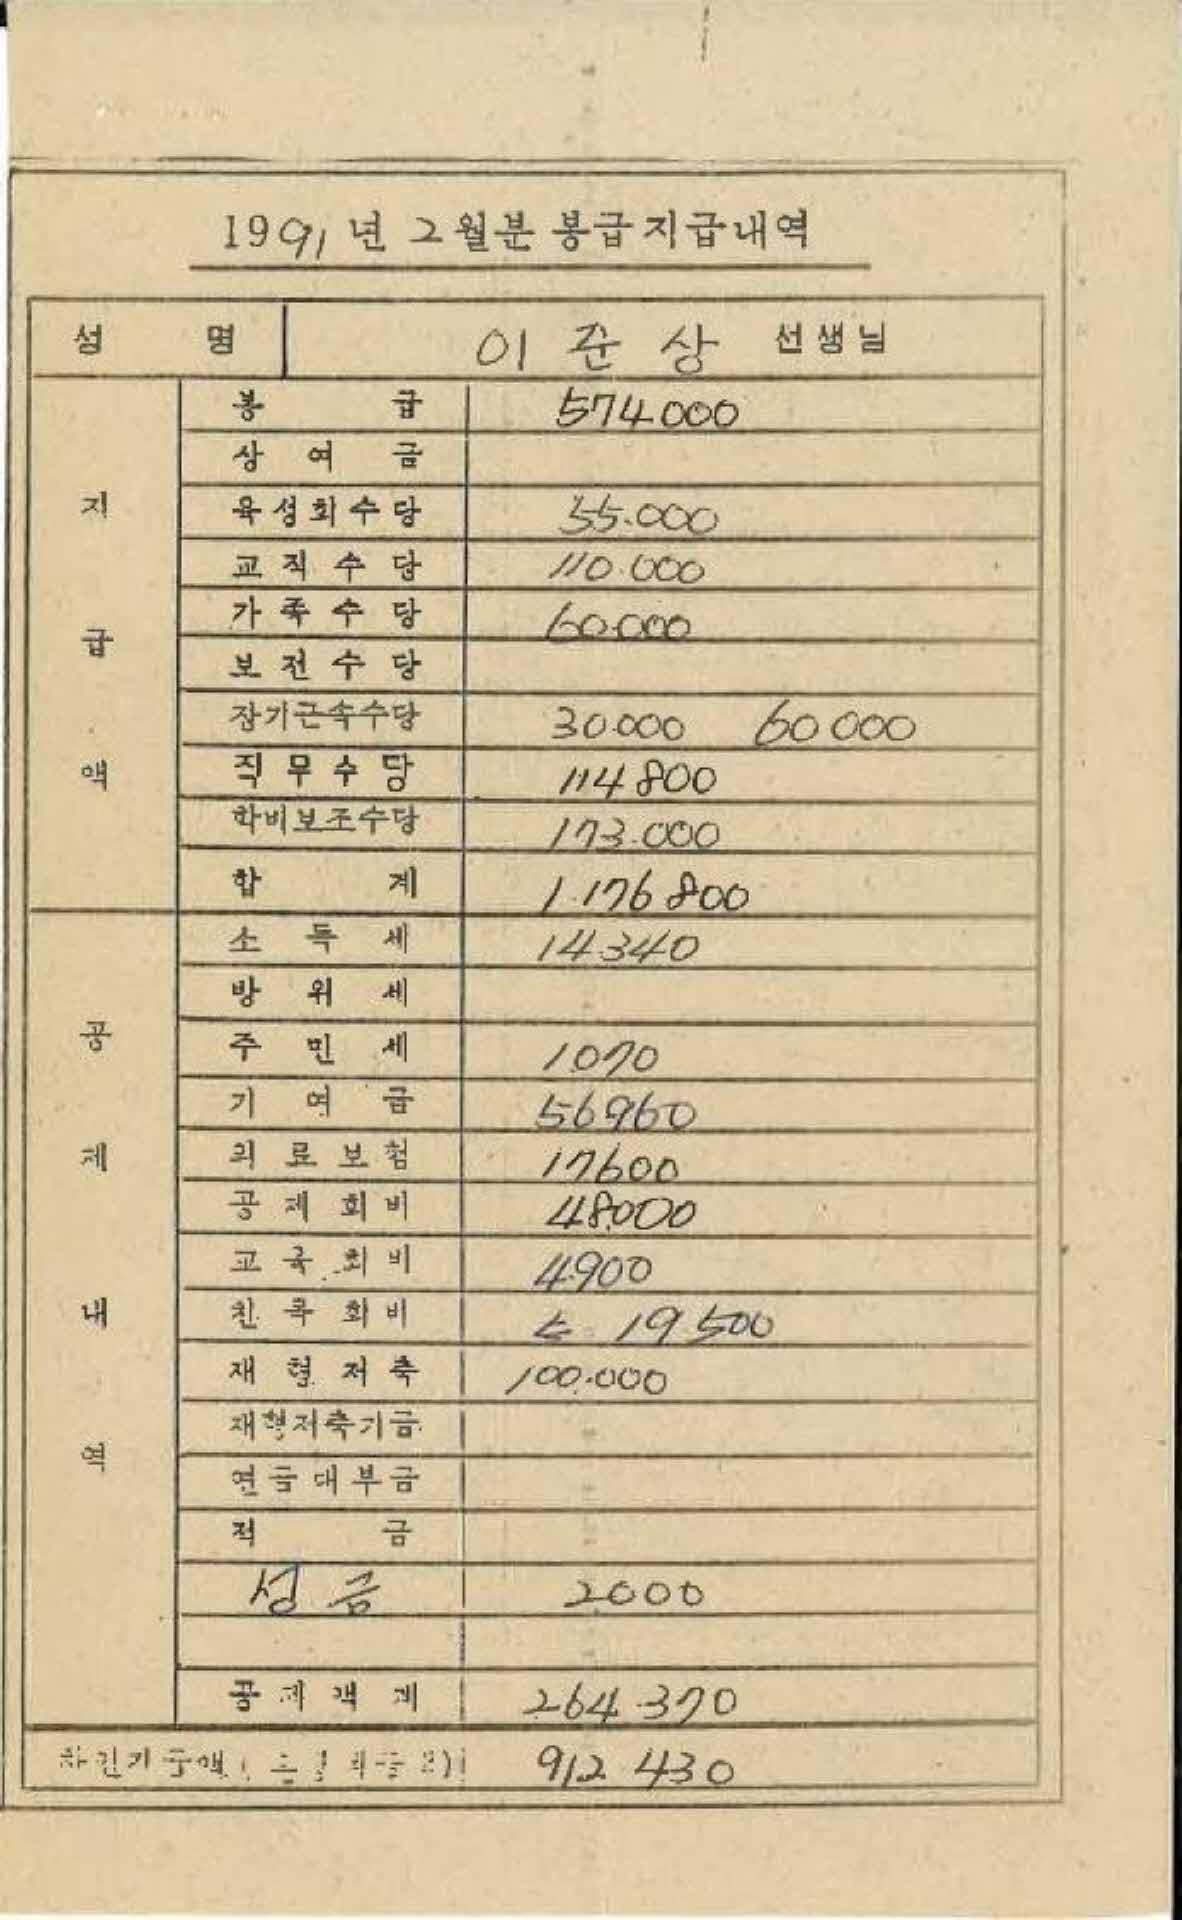 1991년 2월분 봉급지급내역
성 명 이준상 선생님
지급액
봉 급 574000
상 여 금
육성회수당 55.000
교직수당 110.000
가족수당 60.000
보전수당
장기근속수당 30.000 60000
직무수당 114800
학비보조수당 173.000
합 계 1.176800
공제내역
소 득 세 14340
방 위 세
주 민 세 1070
기 여 금 56960
의료보험 17600
공제회비 48000
교육회비 4.900
친목회비 19500
재형저축 100.000
재형저축기금
연금대부금
적 금
성금 2000
공제액계 264.370
912430